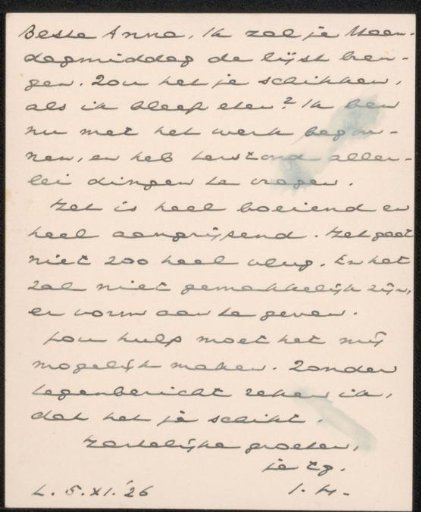 Beste Anna, Ik zal je Maan-
dagmiddag de lijst bren-
gen. Zou het je schikken,
als ik bleef eten? Ik ben
nu met het werk begon-
nen, en heb terstond aller-
lei dingen te vragen.
Het is heel boeiend en
heel aangrijpend. Het gaat
niet zoo heel vlug. En het
zal niet gemakkelijk zijn,
er vorm aan te geven.
Jou hulp moet het mij
mogelijk maken. Zonder
tegenbericht reken ik,
dat het je schikt.
Hartelijke groeten,
je
L. 5. XI. '26 I. H.